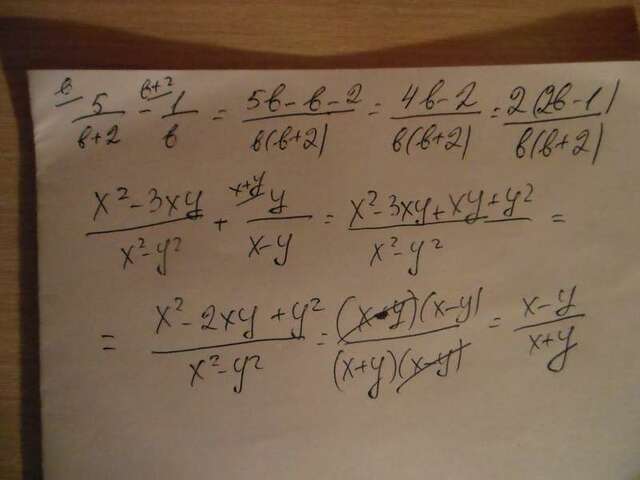 в 5/(в+2) - в+2 1/в = (5в-в-2)/(в(в+2)) = (4в-2)/(в(в+2)) = 2(2в-1)/(в(в+2))
(x²-3xy)/(x²-y²) + x+y y/(x-y) = (x²-3xy+xy+y²)/(x²-y²) =
= (x²-2xy+y²)/(x²-y²) = (x-y)(x-y)/((x+y)(x-y)) = (x-y)/(x+y)